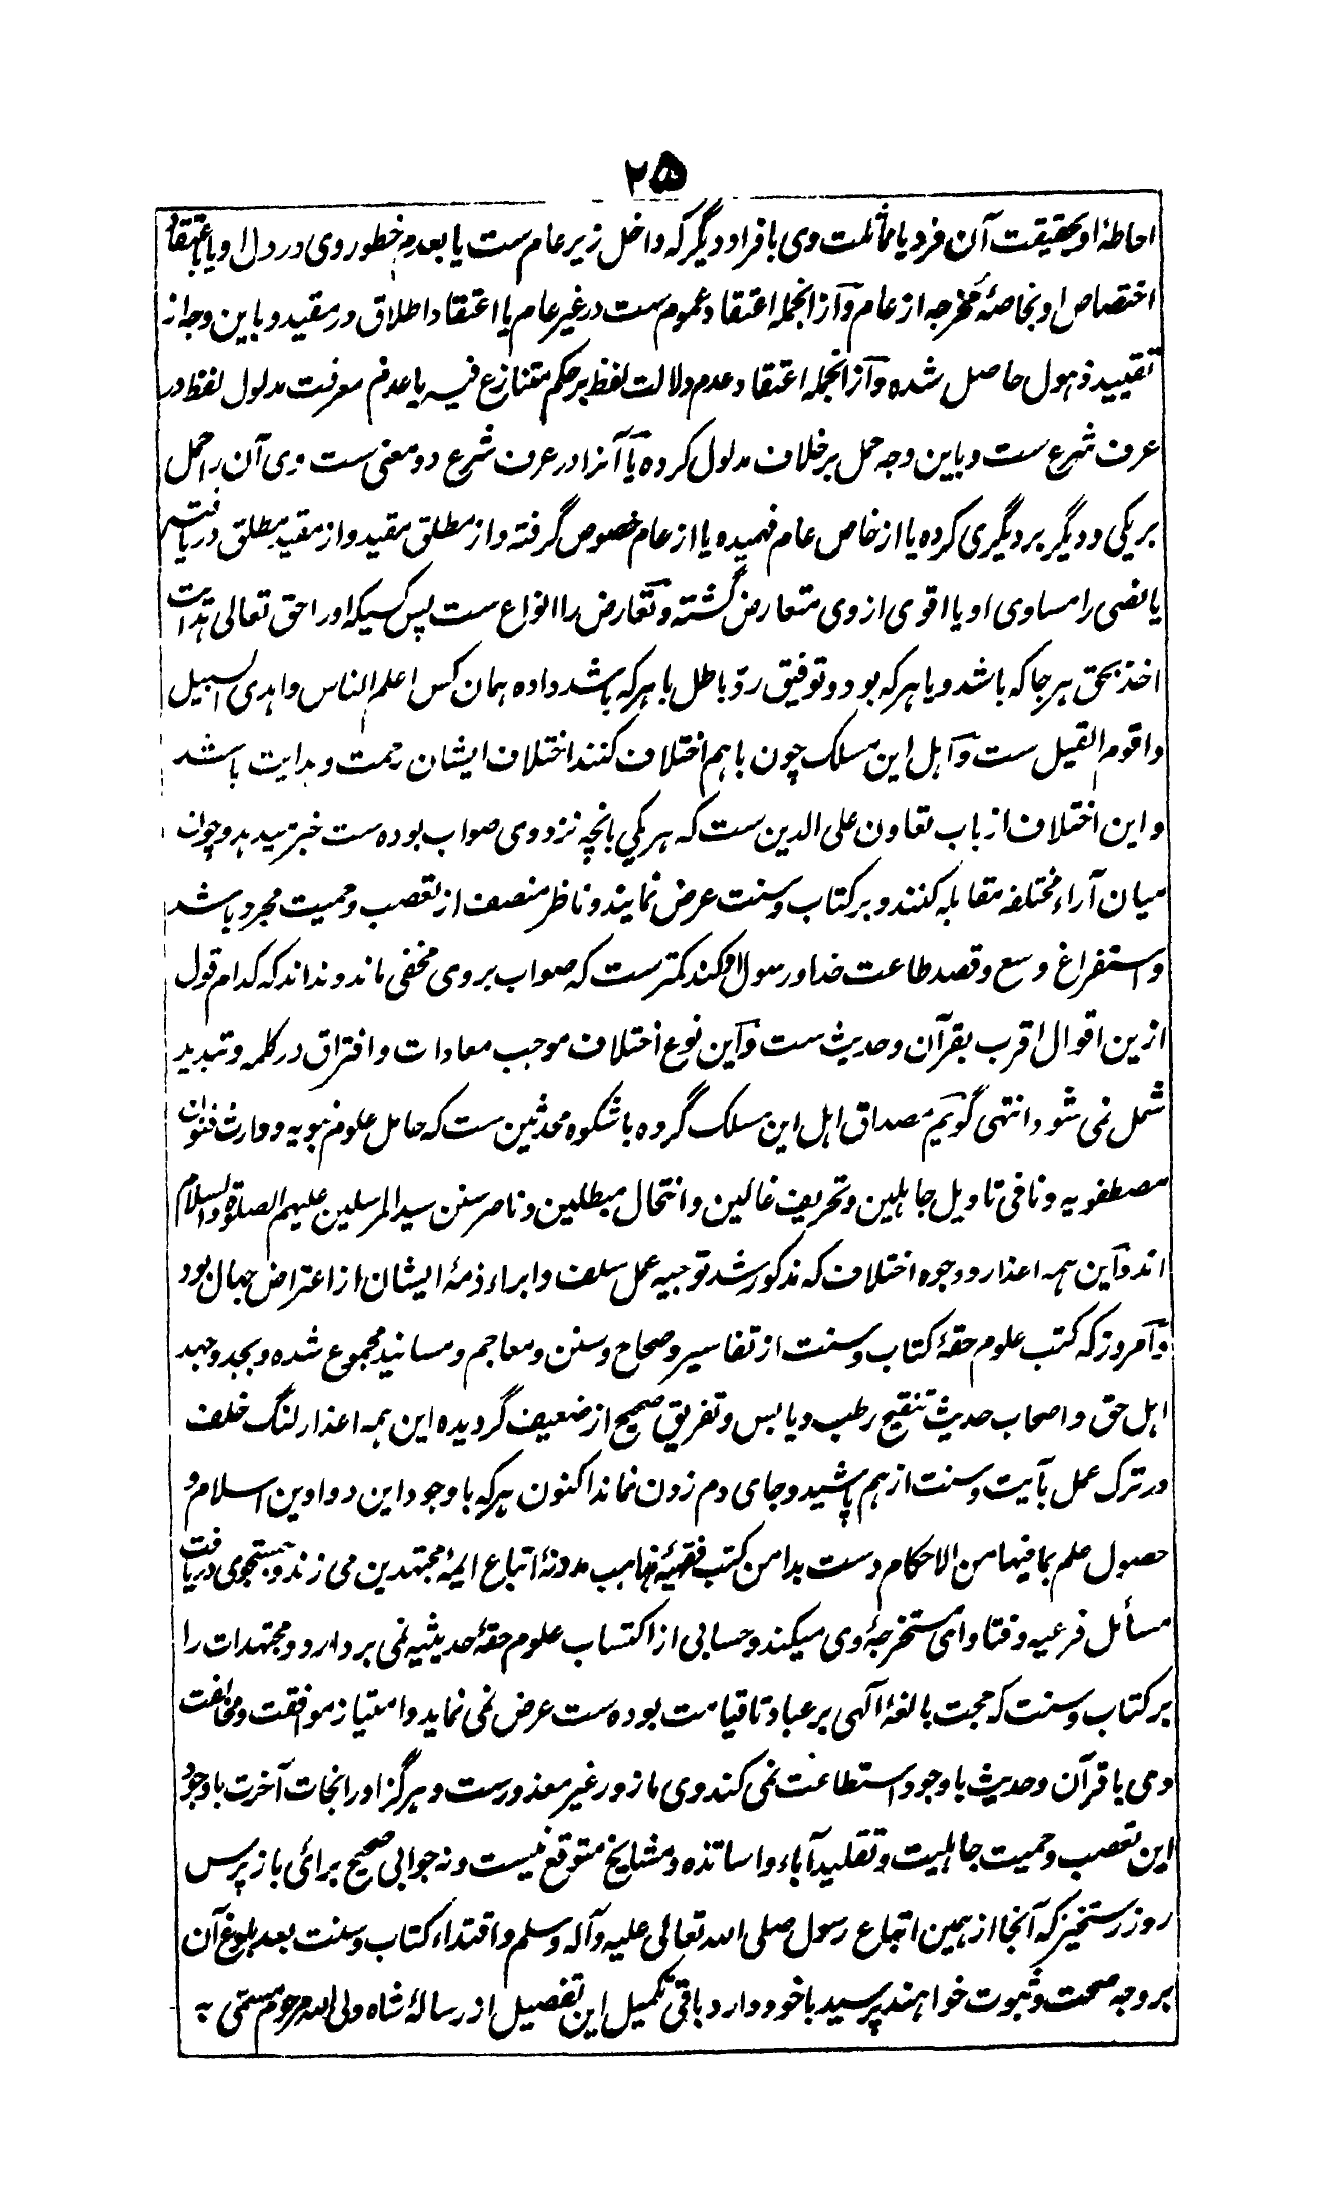 ۲۵
احاطۀ او بحقیقت آن فرد یا مماثلت وی بافراد دیگر که داخل زیر عام ست یا بعدم خطور وی در دل او یا باعتقاد
اختصاص او بخاصۀ مخرجه از عام و از انجمله اعتقاد عموم ست در غیر عام یا اعتقاد اطلاق در مقید و باین وجه از
تقیید ذهول حاصل شده و از انجمله اعتقاد عدم دلالت لفظ بر حکم متنازع فیه یا عدم معرفت مدلول لفظ در
عرف شرع ست و باین وجه حمل بر خلاف مدلول کرده یا آنرا در عرف شرع دو معنی ست وی آن را حمل
بر یکی و دیگر بر دیگری کرده یا از خاص عام فهمیده یا از عام خصوص گرفته و از مطلق مقید و از مقید مطلق دریافته
یا نصی را مساوی او یا اقوی از وی متعارض گشته و تعارض را انواع ست پس کسیکه او را حق تعالی هدایت
اخذ بحق هر جا که باشد و با هر که بود و توفیق رد باطل با هر که باشد داده همان کس اعلم الناس و اهدی السبیل
و اقوم القیل ست و اهل این مسلک چون باهم اختلاف کنند اختلاف ایشان رحمت و هدایت باشد
و این اختلاف از باب تعاون علی الدین ست که هر یکی بانچه نزد وی صواب بوده ست خبر میدهد و چون
میان آراء مختلفه مقابله کنند و بر کتاب و سنت عرض نمایند و ناظر منصف از تعصب و حمیت مجرد باشد
و استفراغ وسع و قصد طاعت خدا و رسول او کند کمتر ست که صواب بر وی مخفی ماند و نداند که کدام قول
ازین اقوال اقرب بقرآن و حدیث ست و این نوع اختلاف موجب معادات و افتراق در کلمه و تبدید
شمل نمی شود انتهی گویم مصداق اهل این مسلک گروه باشکوه محدثین ست که حامل علوم نبویه و وارث فنون
مصطفویه و نافی تاویل جاهلین و تحریف غالین و انتحال مبطلین و ناصر سنن سید المرسلین علیهم الصلوة والسلام
اند و این همه اعذار و وجوه اختلاف که مذکور شد توجیه عمل سلف و ابراء ذمۀ ایشان از اعتراض جهال بود
و امروز که کتب علوم حقۀ کتاب و سنت از تفاسیر و صحاح و سنن و معاجم و مسانید مجموع شده و بجد و جهد
اهل حق و اصحاب حدیث تنقیح رطب و یابس و تفریق صحیح از ضعیف گردیده این همه اعذار لنگ خلف
در ترک عمل بآیت و سنت از هم پاشید و جای دم زدن نماند اکنون هر که با وجود این دواوین اسلام و
حصول علم بما فیها من الاحکام دست بدامن کتب فقهیۀ مذاهب مدونۀ اتباع ایمۀ مجتهدین می زند و جستجوی دریافت
مسائل فرعیه و فتاوای مستخرجۀ وی میکند و حسابی از اکتساب علوم حقۀ حدیثیه نمی بردارد و مجتهدات را
بر کتاب و سنت که حجت بالغۀ الهی بر عباد تا قیامت بوده ست عرض نمی نماید و امتیاز موافقت و مخالفت
وی با قرآن و حدیث باوجود استطاعت نمی کند وی مازور غیر معذورست و هرگز او را نجات آخرت باوجود
این تعصب و حمیت جاهلیت و تقلید آباء و اساتذه و مشایخ متوقع نیست و نه جوابی صحیح برای باز پرس
روز رستخیز که آنجا از همین اتباع رسول صلی الله تعالی علیه وآله وسلم و اقتداء کتاب و سنت بعد بلوغ آن
بر وجه صحت و ثبوت خواهند پرسید باخود دارد باقی تکمیل این تفصیل از رسالۀ شاه ولی الله مرحوم مسمی به